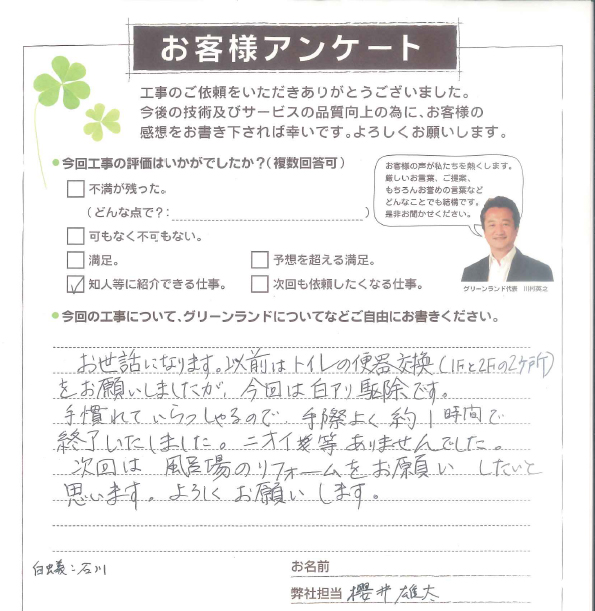 お客様アンケート
工事のご依頼をいただきありがとうございました。
今後の技術及びサービスの品質向上の為に、お客様の
感想をお書き下されば幸いです。よろしくお願いします。
●今回工事の評価はいかがでしたか?(複数回答可)
不満が残った。
(どんな点で?: )
可もなく不可もない。
満足。 予想を超える満足。
知人等に紹介できる仕事。 次回も依頼したくなる仕事。
お客様の声が私たちを熱くします。
厳しいお言葉、ご提案、
もちろんお誉めの言葉など
どんなことでも結構です。
是非お聞かせください。
グリーンランド代表 川村英之
●今回の工事について、グリーンランドについてなどご自由にお書きください。
お世話になります。以前はトイレの便器交換(1Fと2Fの2ケ所)
をお願いしましたが、今回は白アリ駆除です。
手慣れていらっしゃるので 手際よく約1時間で
終了いたしました。ニオイ等ありませんでした。
次回は 風呂場のリフォームをお願いしたいと
思います。よろしくお願いします。
白蟻:石川
お名前
弊社担当 櫻井雄大